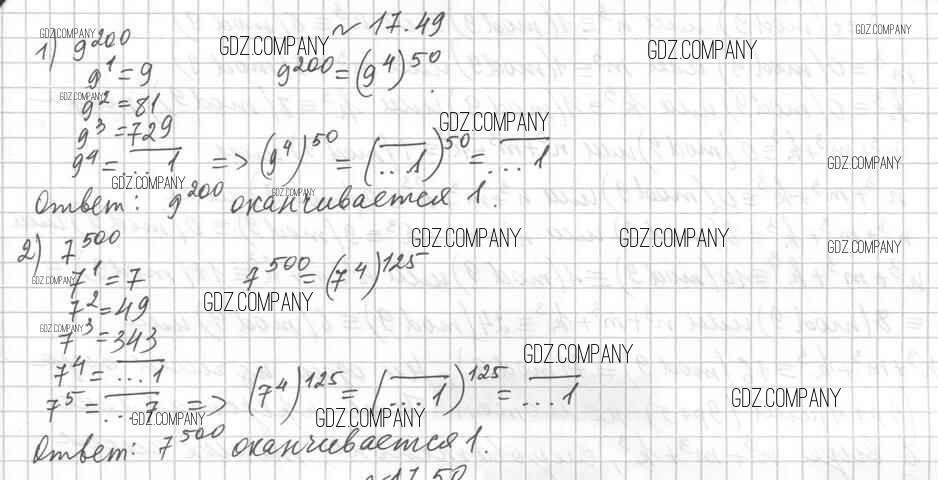 GDZ.COMPANY № 17.49 GDZ.COMPANY
1) 9^200 GDZ.COMPANY GDZ.COMPANY
9^1 = 9 9^200 = (9^4)^50.
GDZ.COMPANY
9^2 = 81
9^3 = 729 GDZ.COMPANY
9^4 = ...1 => (9^4)^50 = (...1)^50 = ...1 GDZ.COMPANY
GDZ.COMPANY GDZ.COMPANY
Ответ: 9^200 оканчивается 1.
2) 7^500 GDZ.COMPANY GDZ.COMPANY GDZ.COMPANY
GDZ.COMPANY 7^1 = 7 7^500 = (7^4)^125
7^2 = 49 GDZ.COMPANY
GDZ.COMPANY
7^3 = 343
GDZ.COMPANY
7^4 = ...1 (7^4)^125 = (...1)^125 = ...1
7^5 = ...7 => GDZ.COMPANY
GDZ.COMPANY GDZ.COMPANY
Ответ: 7^500 оканчивается 1.
№ 17.50